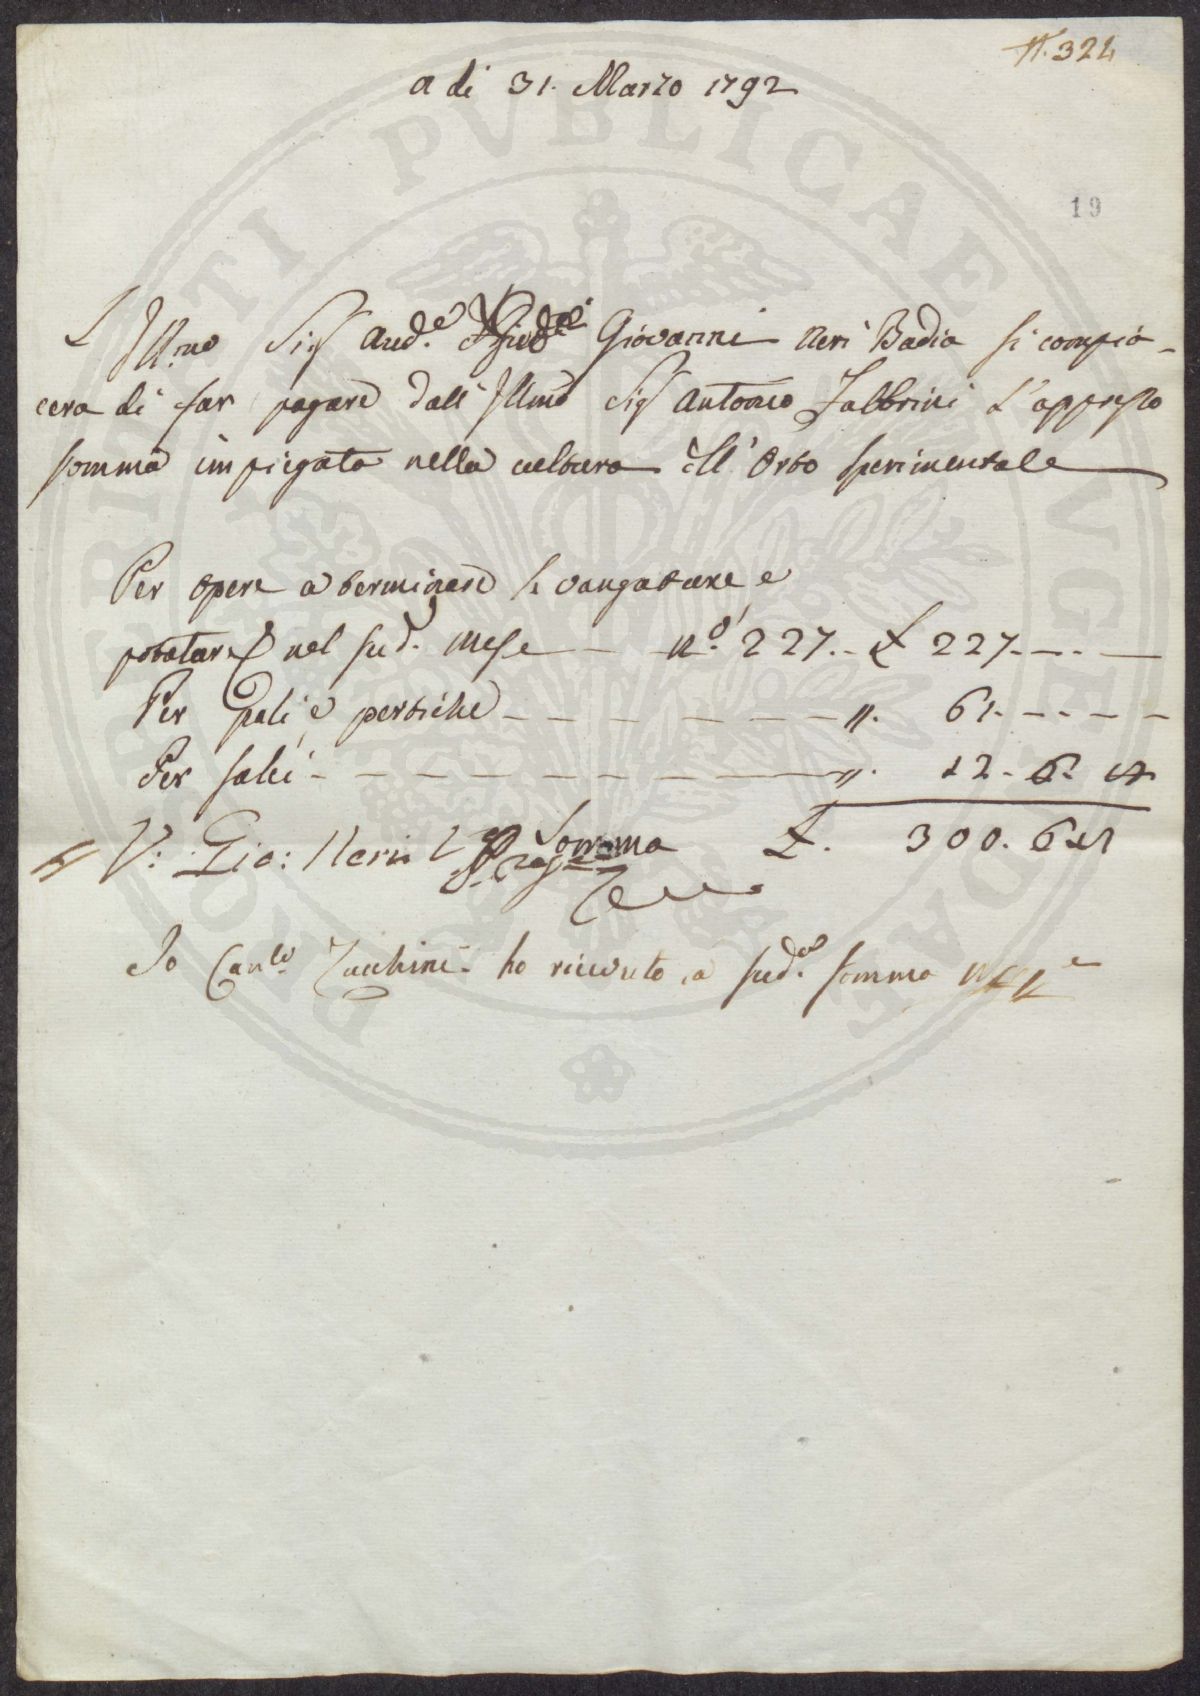 N. 324
a di 31. Marzo 1792
19
L' Illmo Sig Aud.e Giovanni Neri Badia si compia-
cera di far pagare dall' Illmo Sig Antonio Fabbrini L'appresso
somma impiegata nella cultura dell' Orto sperimentale
Per opere a terminare le vangature e
potature nel sud. mese — n.o 227. - £ 227. - . - —
Per pali, e pertiche - - - - - - - - - - ". 61. - - - -
Per salci - - - - - - - - - - ". 12. 6.
V: Gio: Neri Somma £. 300. 6
Io Can.co Zucchini ho ricevuto a sud.a somma